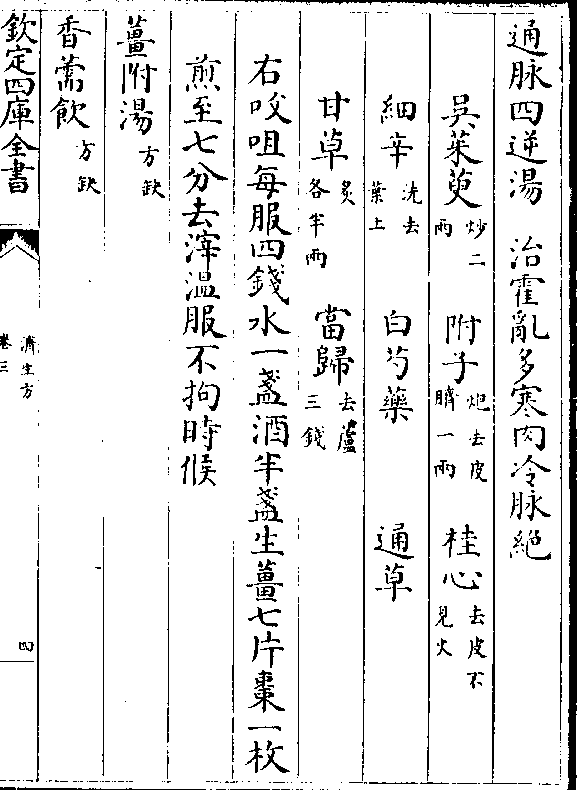 通脉四逆湯　治霍亂多寒肉冷脉絶
吳茱萸炒二兩　附子炮去皮臍一兩　桂心去皮不見火
細辛洗去葉土　白芍藥　通草
甘草炙各半兩　當歸去蘆三錢
右㕮咀每服四錢水一盞酒半盞生薑七片棗一枚
煎至七分去滓温服不拘時候
薑附湯方缺
香薷飲方缺
欽定四庫全書　濟生方卷三　四